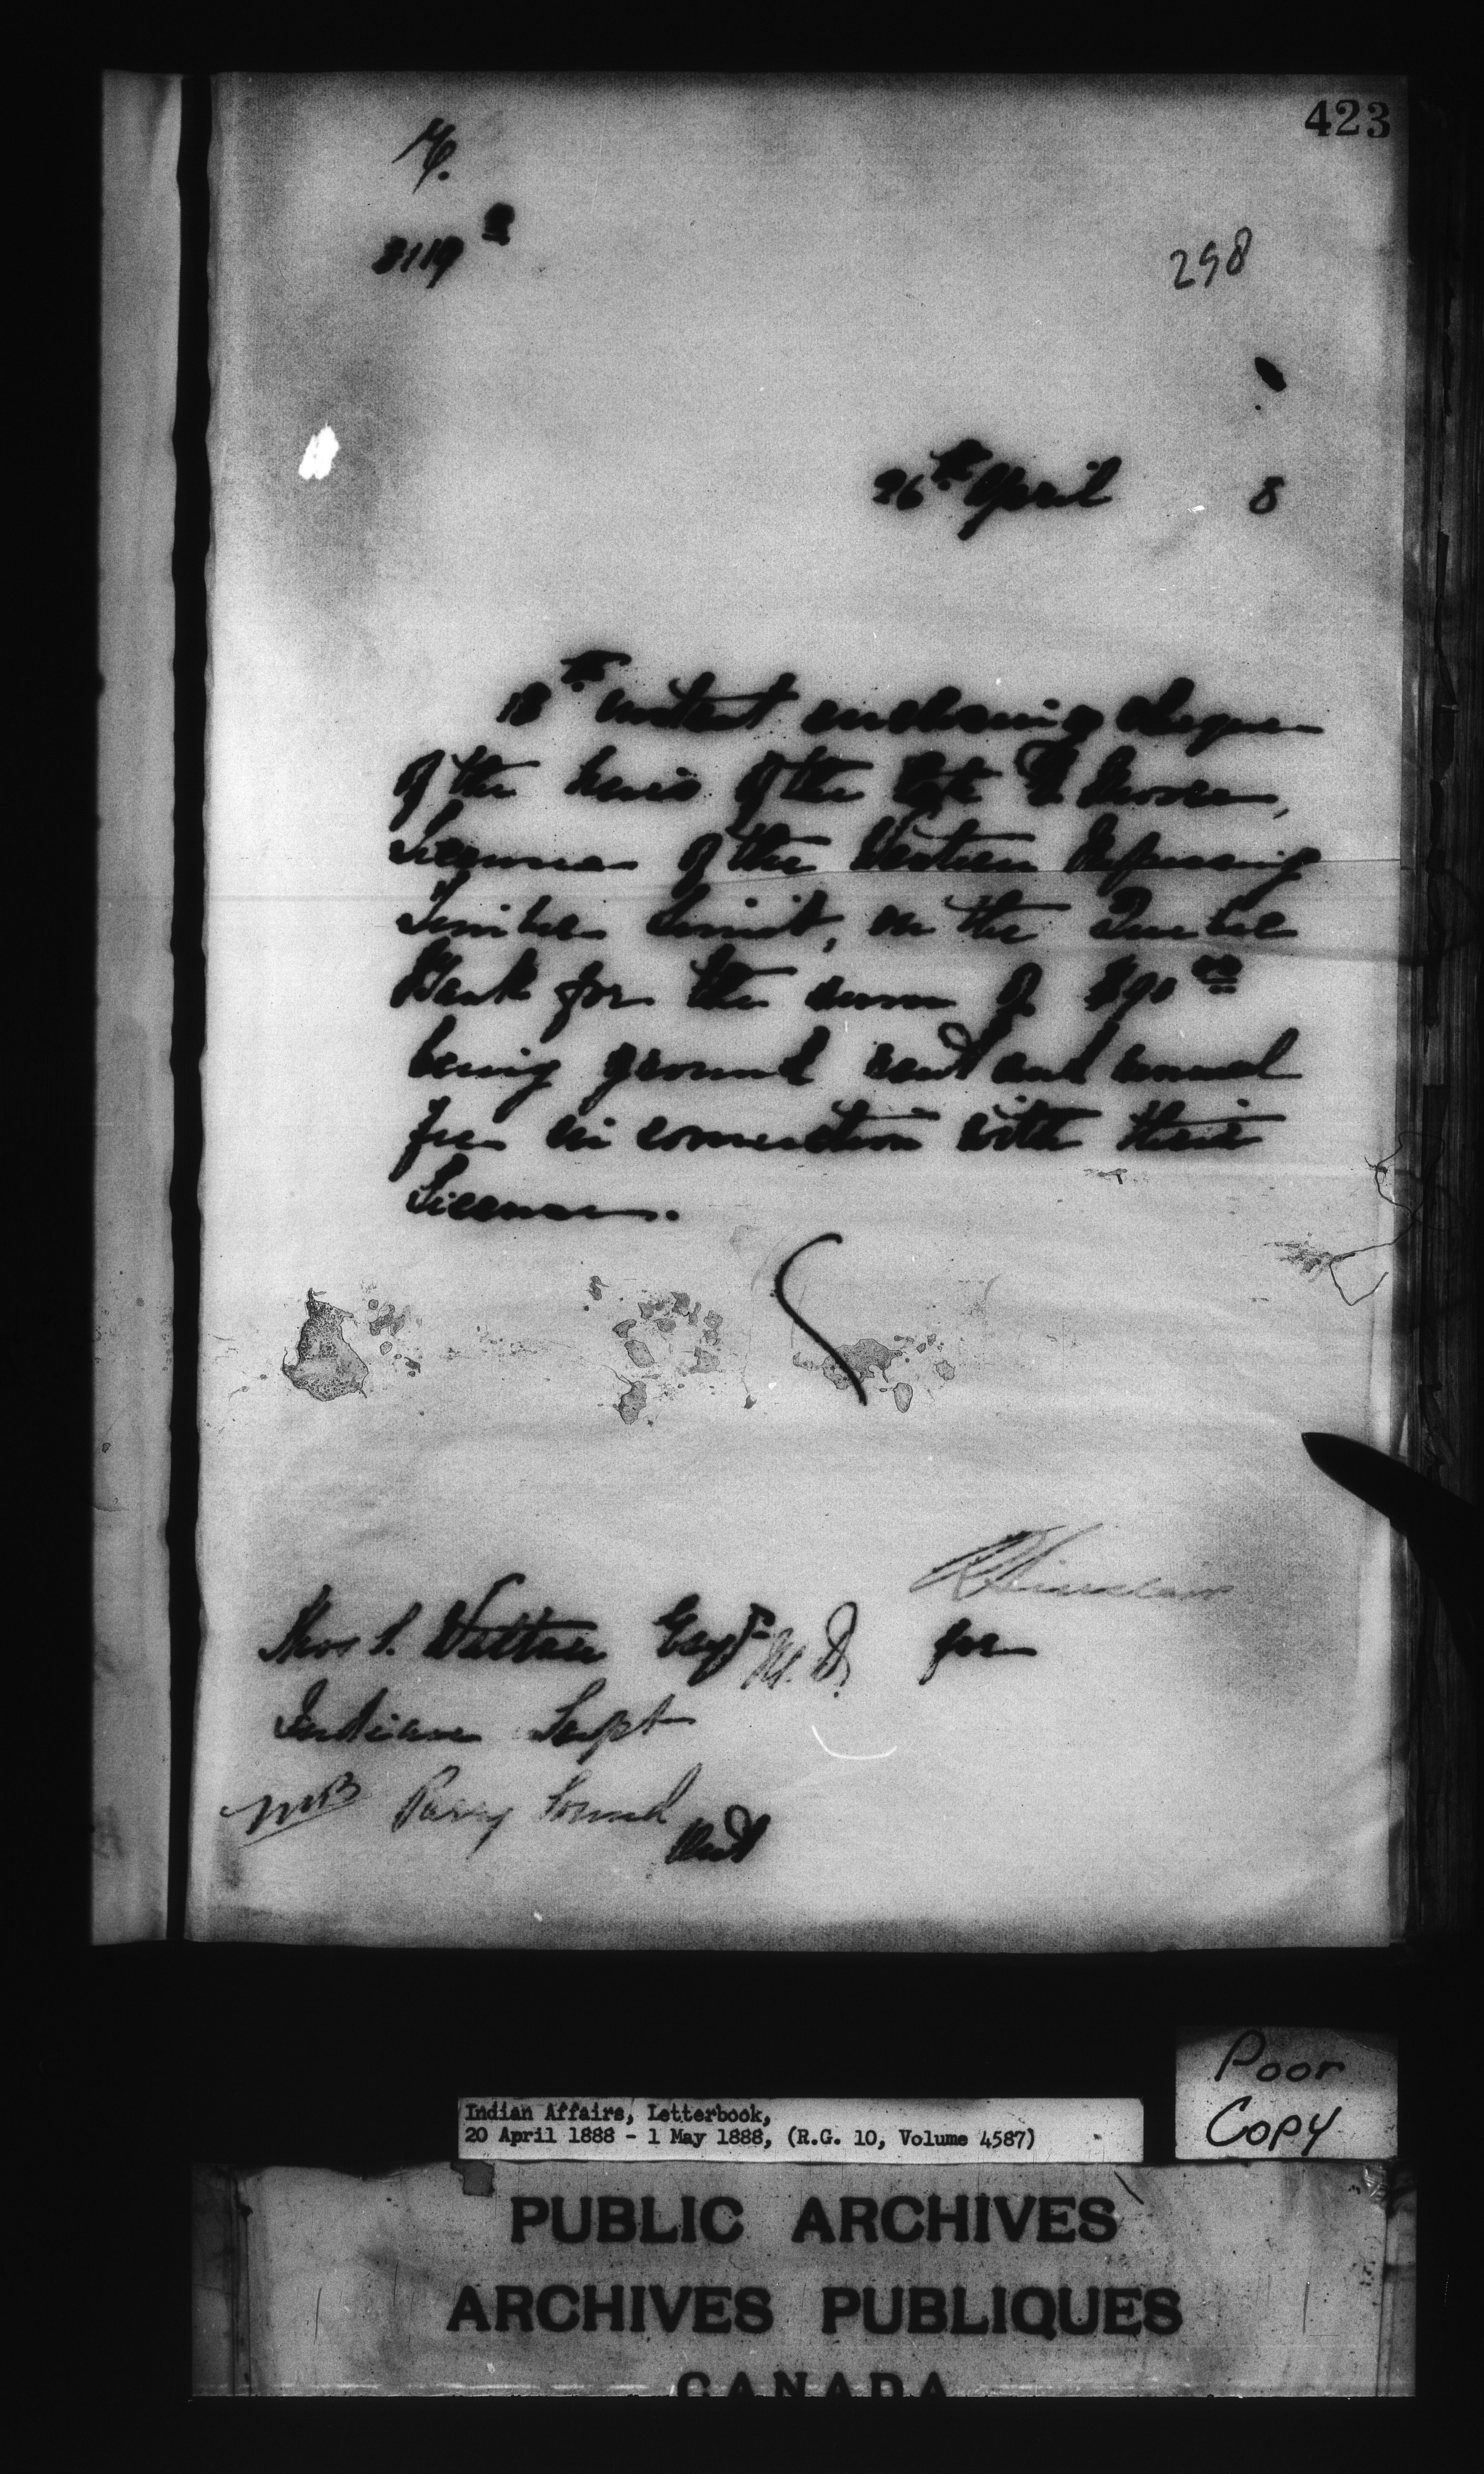 423
298
26th April 8
18th instant enclosing cheque
of the heirs of the late
Licensees of the Western Nipissing
Timber Limit, on the Quebec
Bank for the sum of $90 00
being ground rent and renewal
fee in connection with their
License.
Thos S. Walton Esqr M.D. for
Indian Supt
Parry Sound
Ont
Poor
Copy
Indian Affairs, Letterbook,
20 April 1888 - 1 May 1888, (R.G. 10, Volume 4587)
PUBLIC ARCHIVES
ARCHIVES PUBLIQUES
CANADA